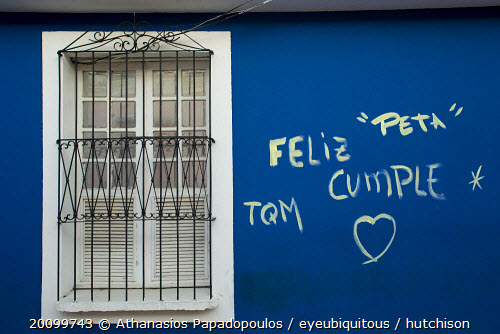 "PETA"
FELiZ
CUMPLE *
TQM
20099743 © Athanasios Papadopoulos / eyeubiquitous / hutchison